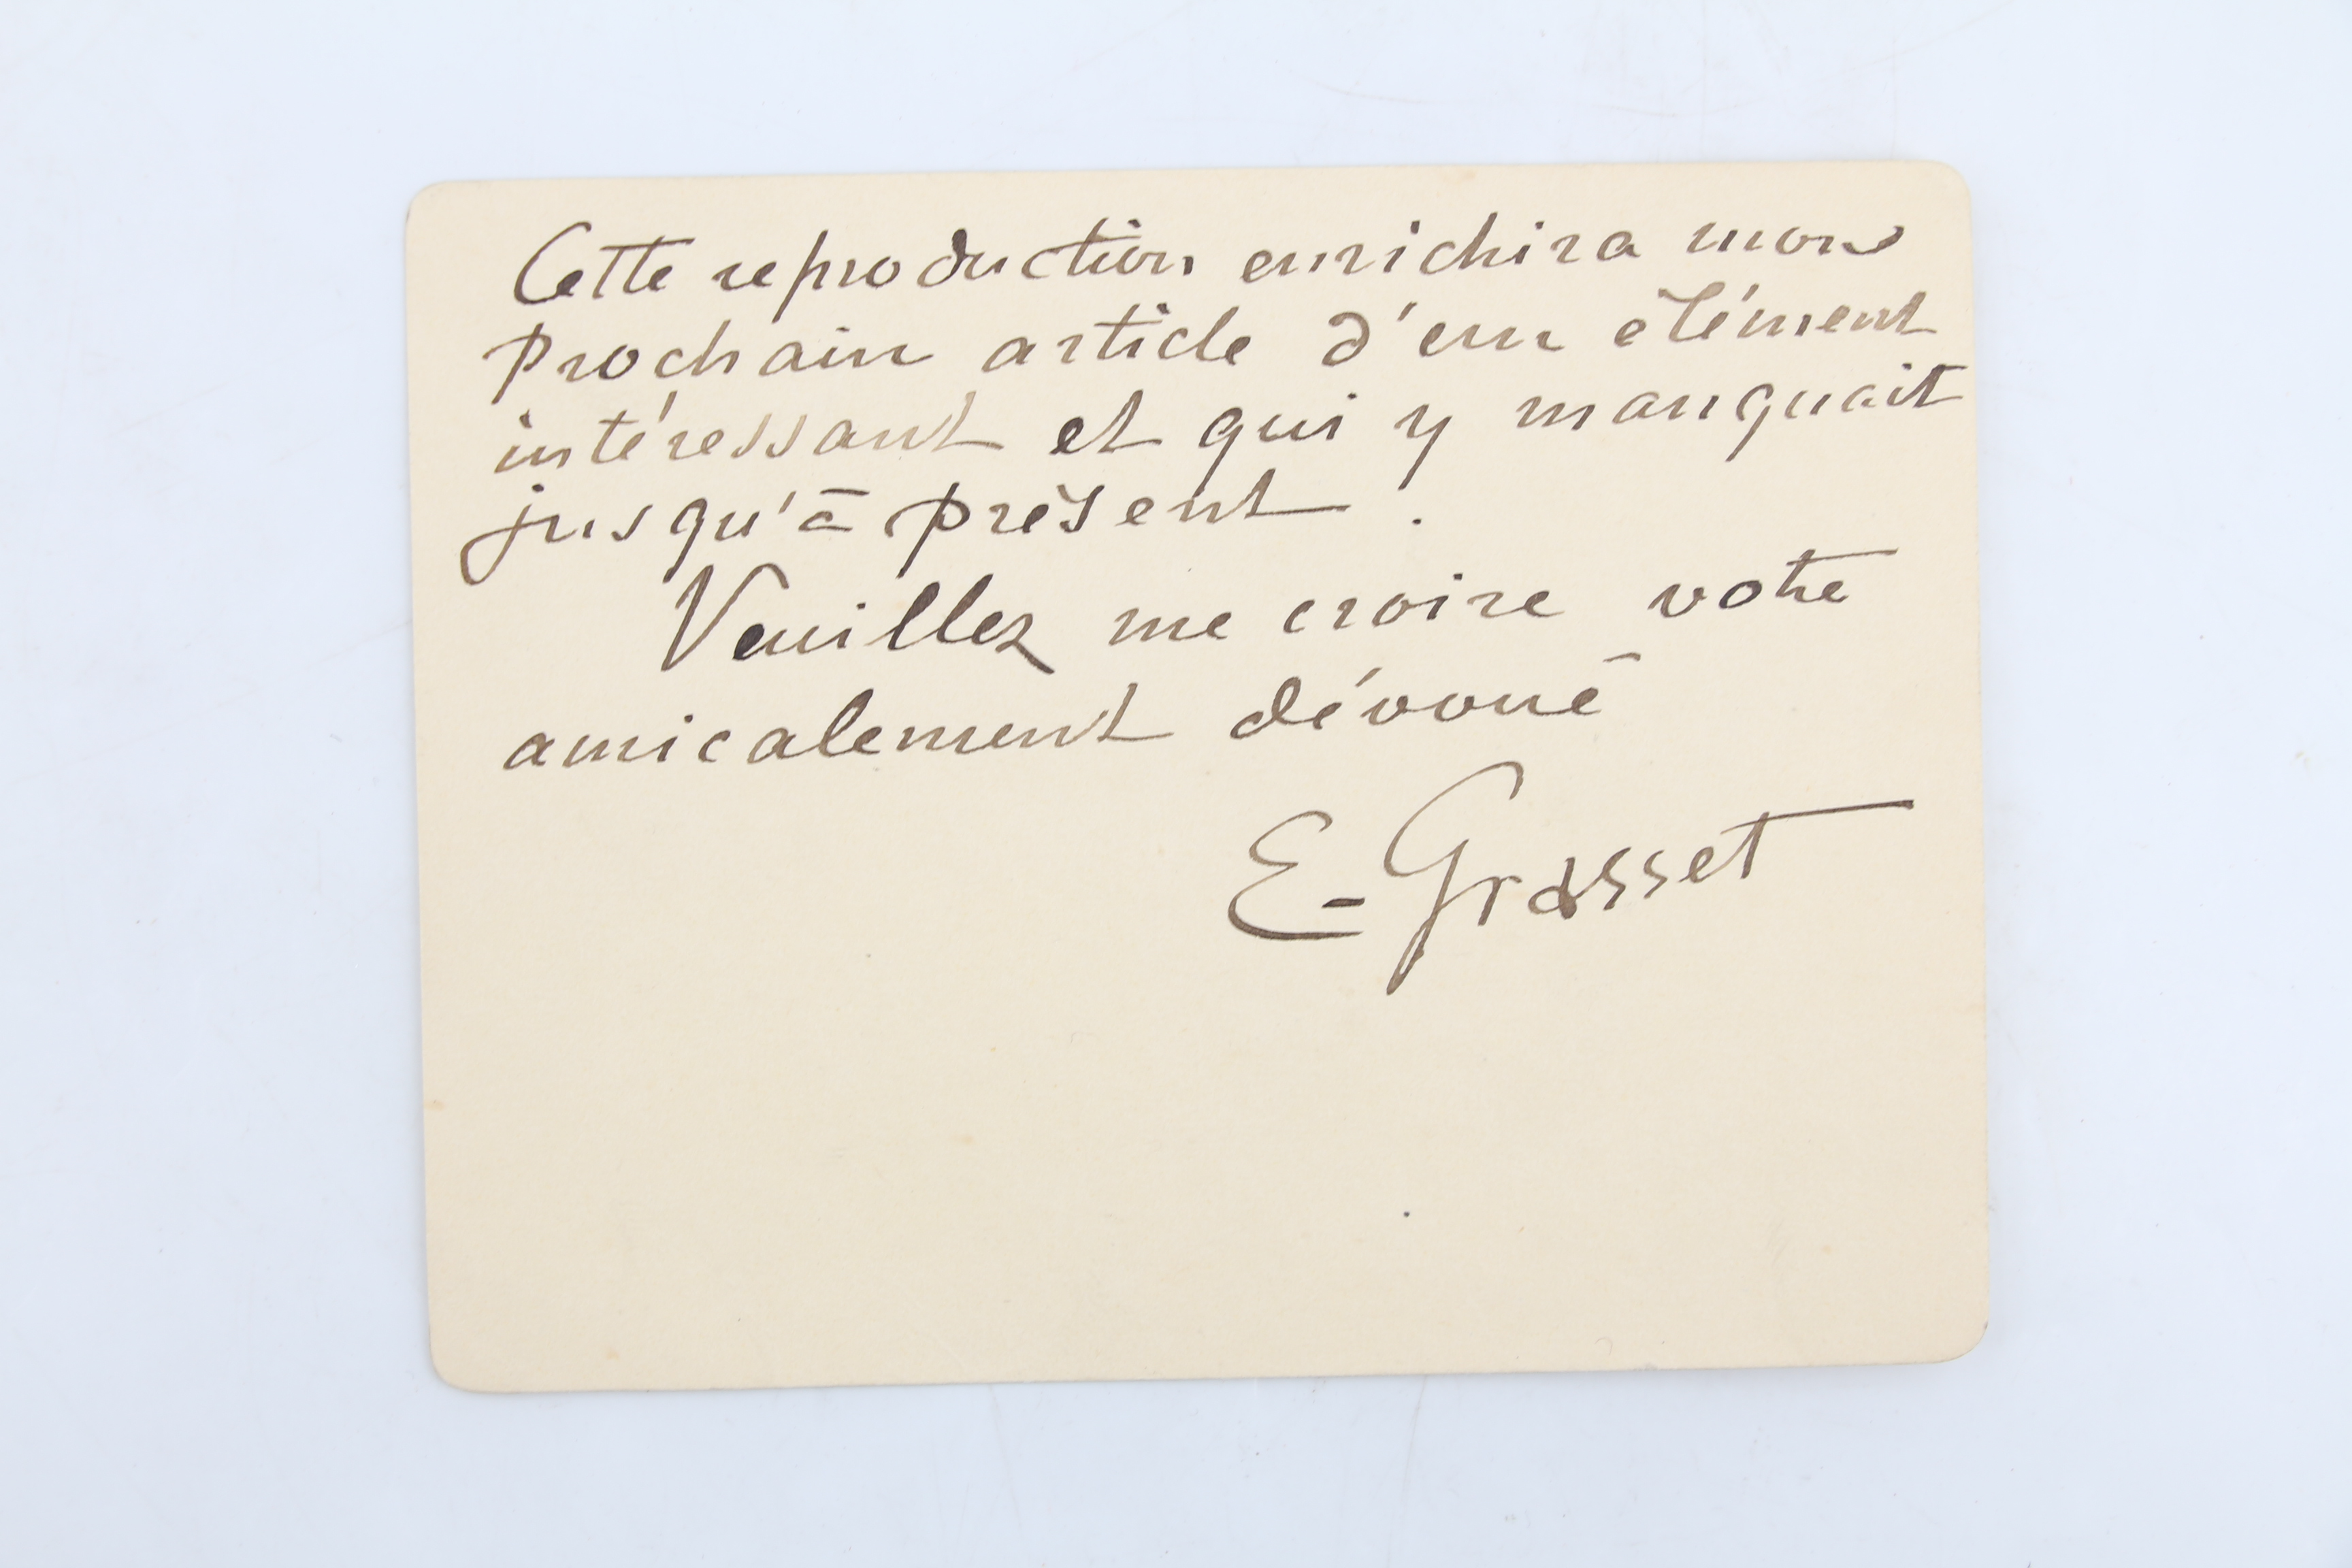 Cette reproduction enrichira mon
prochain article d'un élément
intéressant et qui y manquait
jusqu'à présent.
Veuillez me croire votre
amicalement dévoué
E-Grasset